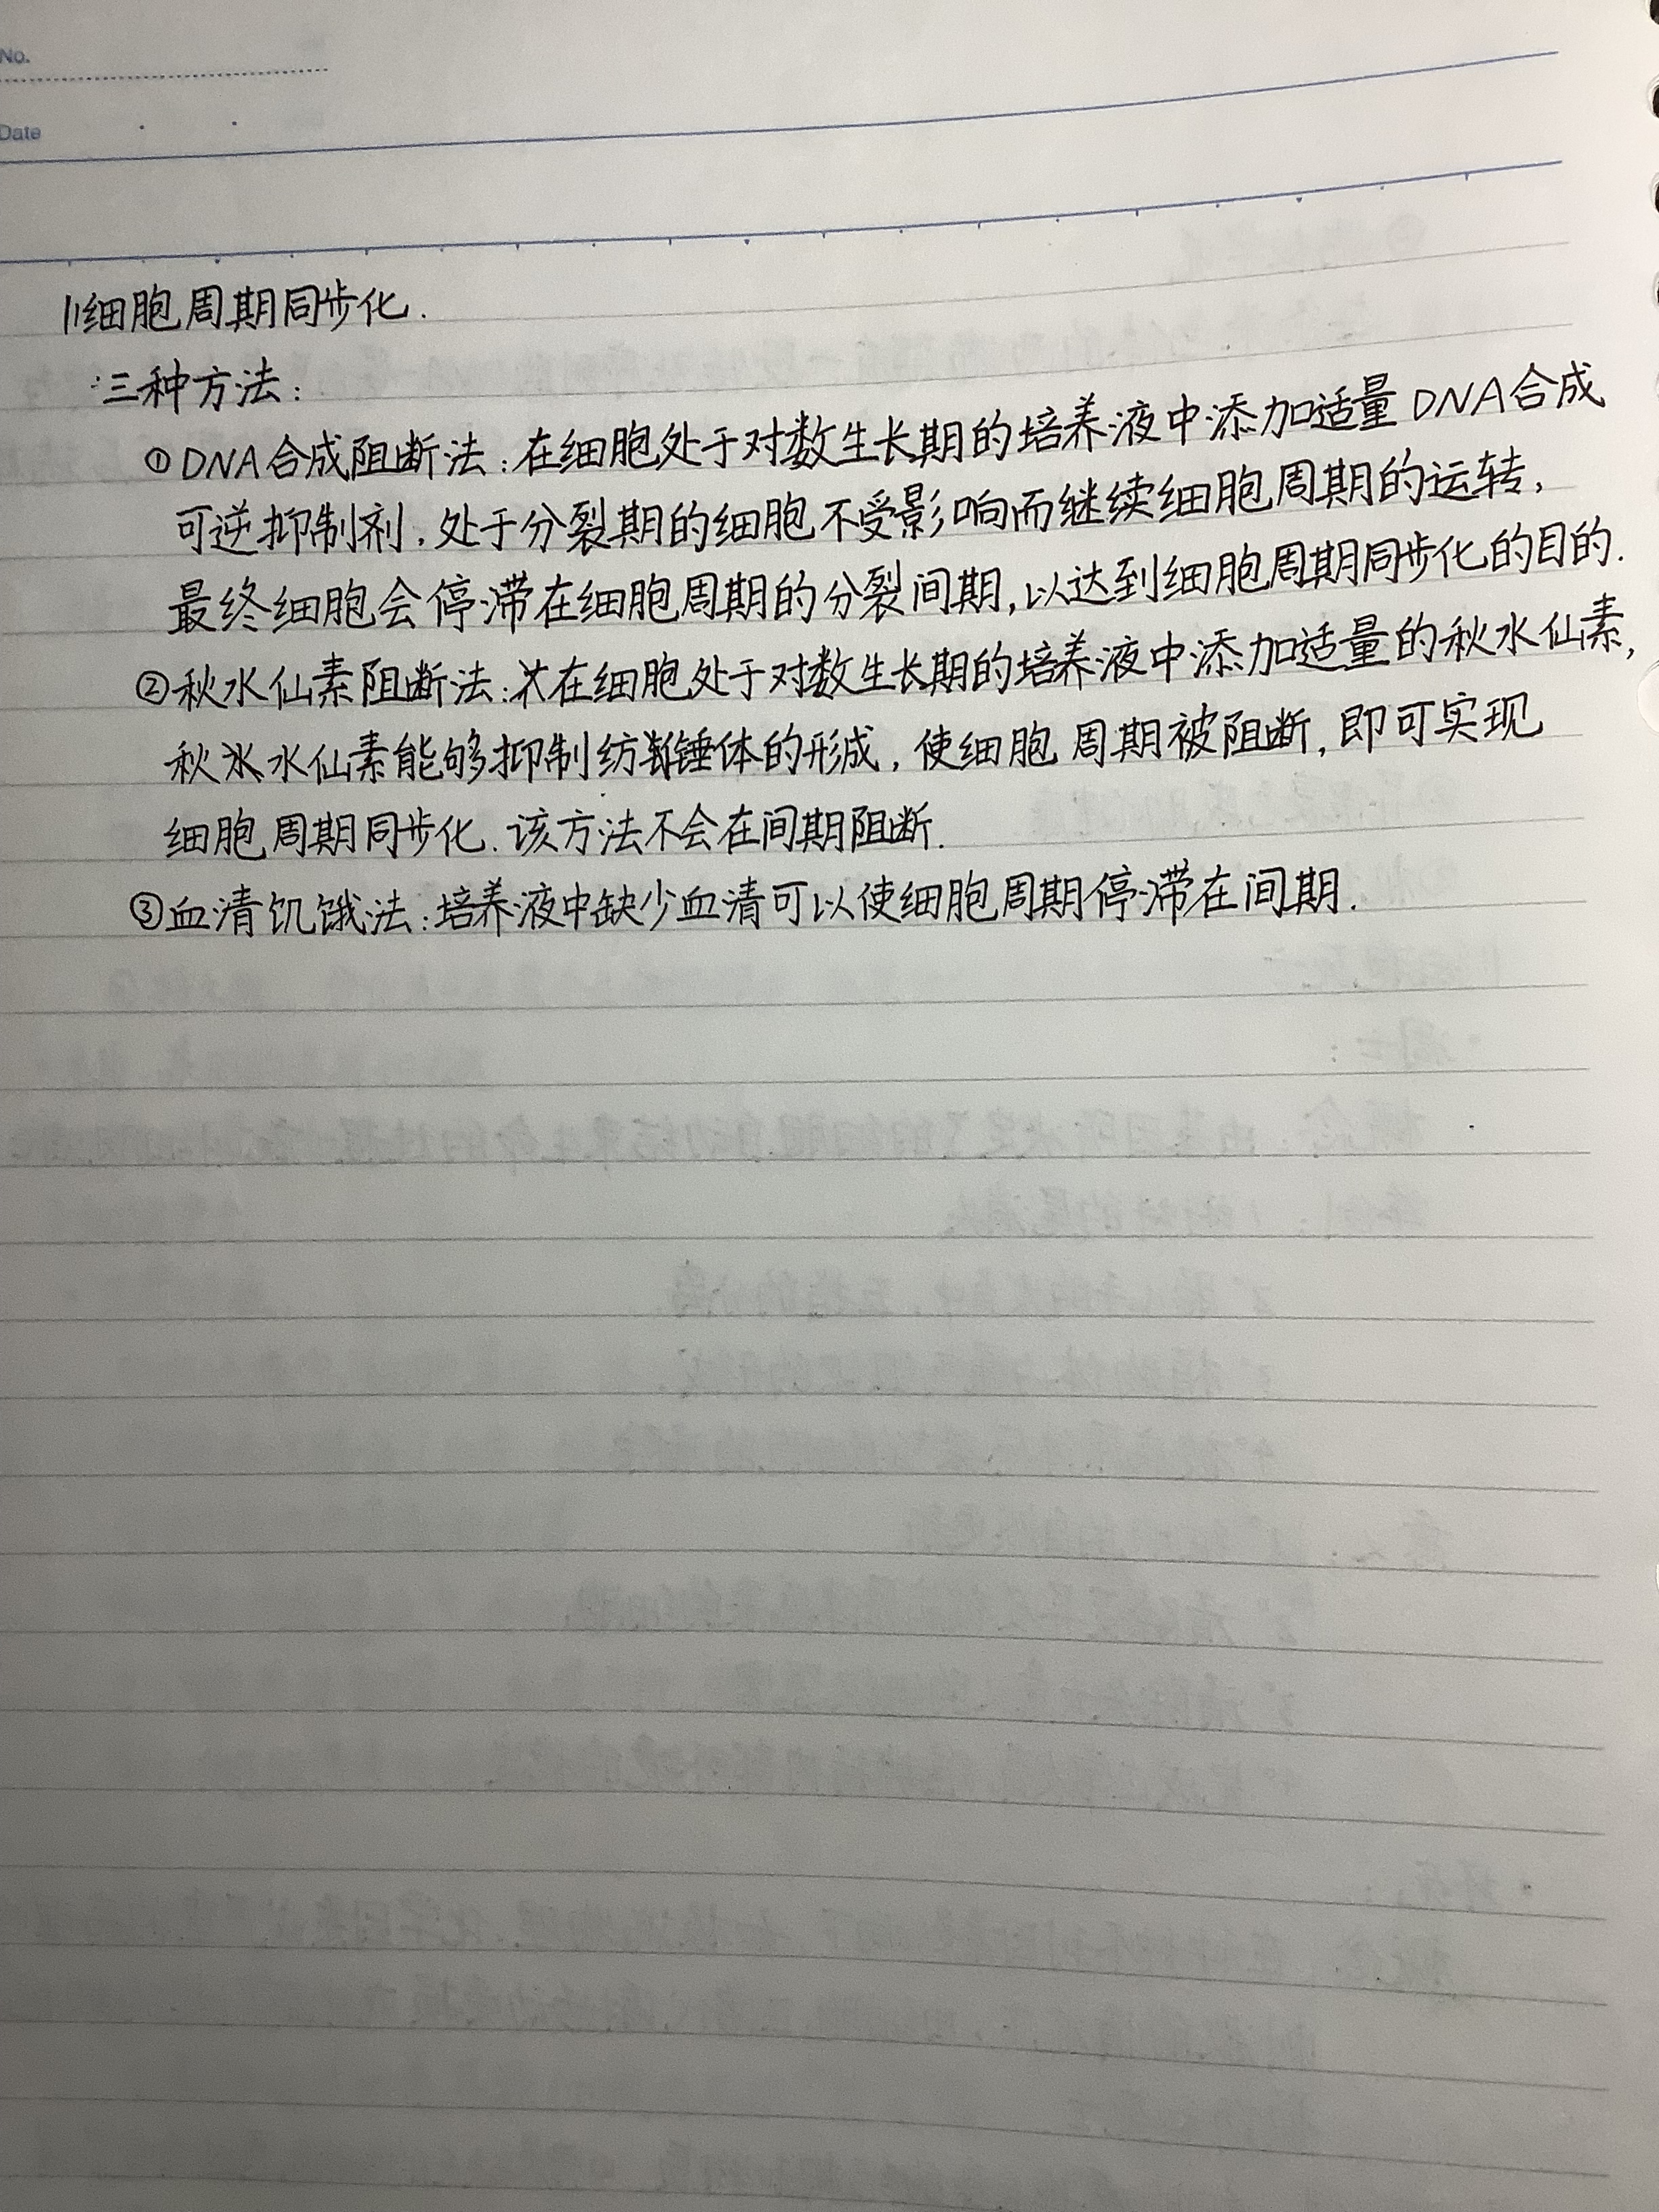 No.
Date
11细胞周期同步化.
·三种方法:
①DNA合成阻断法:在细胞处于对数生长期的培养液中添加适量DNA合成
可逆抑制剂.处于分裂期的细胞不受影响而继续细胞周期的运转,
最终细胞会停滞在细胞周期的分裂间期,以达到细胞周期同步化的目的.
②秋水仙素阻断法:在细胞处于对数生长期的培养液中添加适量的秋水仙素,
秋水仙素能够抑制纺锤体的形成,使细胞周期被阻断,即可实现
细胞周期同步化.该方法不会在间期阻断.
③血清饥饿法:培养液中缺少血清可以使细胞周期停滞在间期.